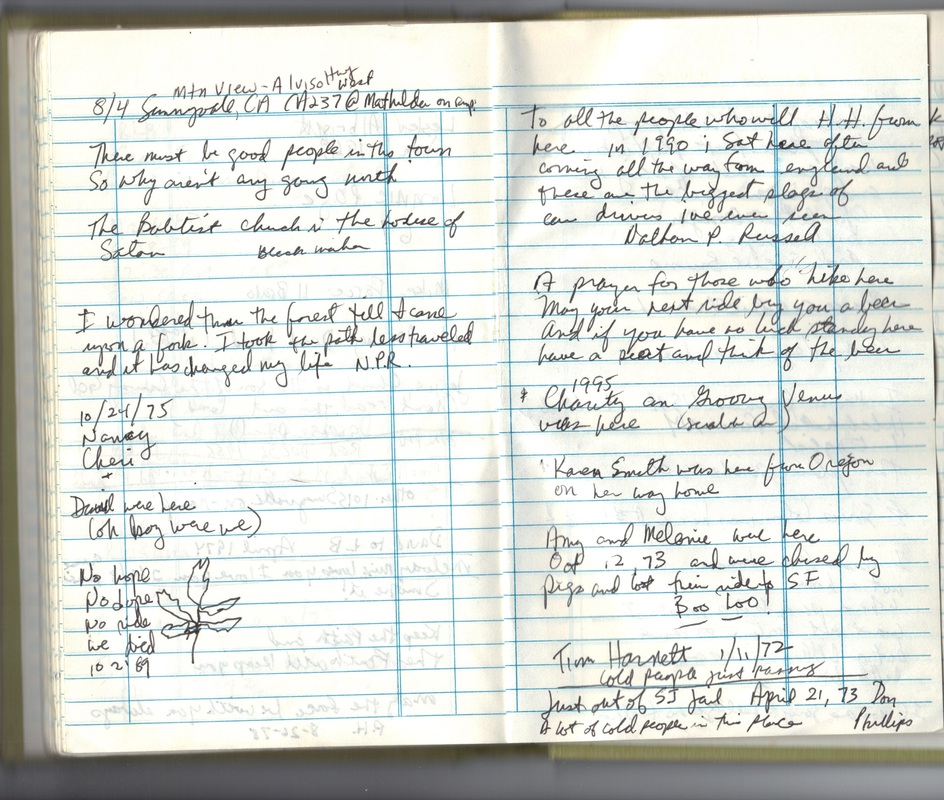 Mtn View - Alviso Hwy West
8/4 Sunnyvale, CA CA237 @ Mathilda on ramp.
There must be good people in this town
So why aren't any going north
The Babtist church is the house of
Satan
I wondered thru the forest till I came
upon a fork. I took the path less traveled
and it has changed my life N.P.R.
10/24/75
Nancy
Cheri
+
David were here
(oh boy were we)
No hope
No dope
No ride
we died
10 21 89
To all the people who will H.H. from
here in 1990 i sat here often
coming all the way from england and
these are the biggest slags of
car drivers I've ever seen
Dalhon P. Russell
A prayer for those who hike here
May your next ride buy you a beer
And if you have no luck standing here
have a seat and think of the beer
1995
* Charity an Groovy Venus
was here
Karen Smith was here from Oregon
on her way home
Amy and Melanie were here
Oct 12 73 and were chased by
pigs and lost their ride to SF
Boo Loo!
Tim Harnett 1/11/72
cold people just passing
Just out of SJ Jail April 21, 73 Don
Phillips
A lot of cold people in this place